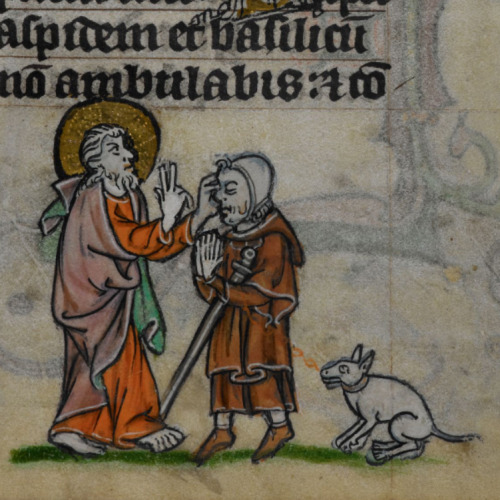 aspidem et basilicū
nō ambulabis: ⁊ cō